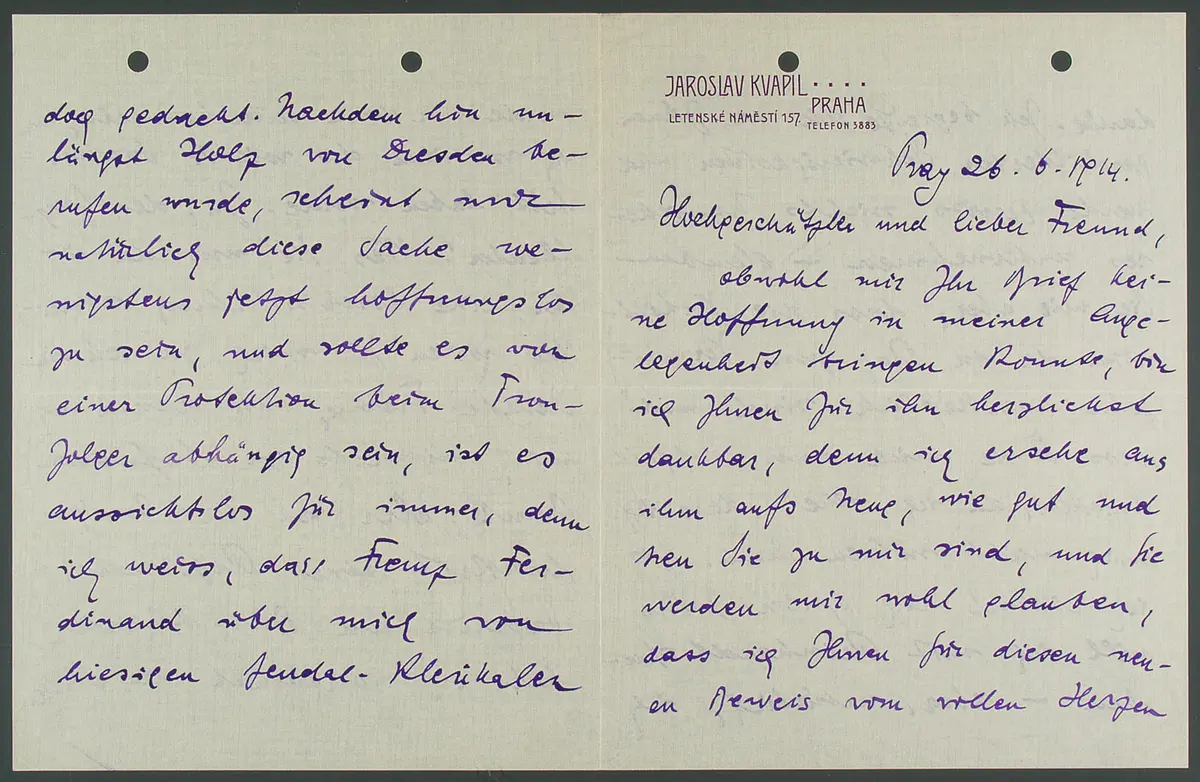 JAROSLAV KVAPIL . . . .
PRAHA
LETENSKÉ NÁMĚSTÍ 157. TELEFON 3883
Prag 26. 6. 1914.
Hochgeschätzter und lieber Freund,
obwohl mir Ihr Brief kei-
ne Hoffnung in meiner Ange-
legenheit bringen konnte, bin
ich Ihnen für ihn herzlichst
dankbar, denn ich ersehe aus
ihm aufs Neue, wie gut und
treu Sie zu mir sind, und Sie
werden mir wohl glauben,
dass ich Ihnen für diesen neu-
en Beweis vom vollen Herzen
doch gedacht. Nachdem hin un-
längst Holz von Dresden be-
rufen wurde, scheint mir
natürlich diese Sache we-
nigstens jetzt hoffnungslos
zu sein, und sollte es von
einer Protektion beim Tron-
folger abhängig sein, ist es
aussichtslos für immer, denn
ich weiss, dass Franz Fer-
dinand über mich von
hiesigen feudal-klerikalen